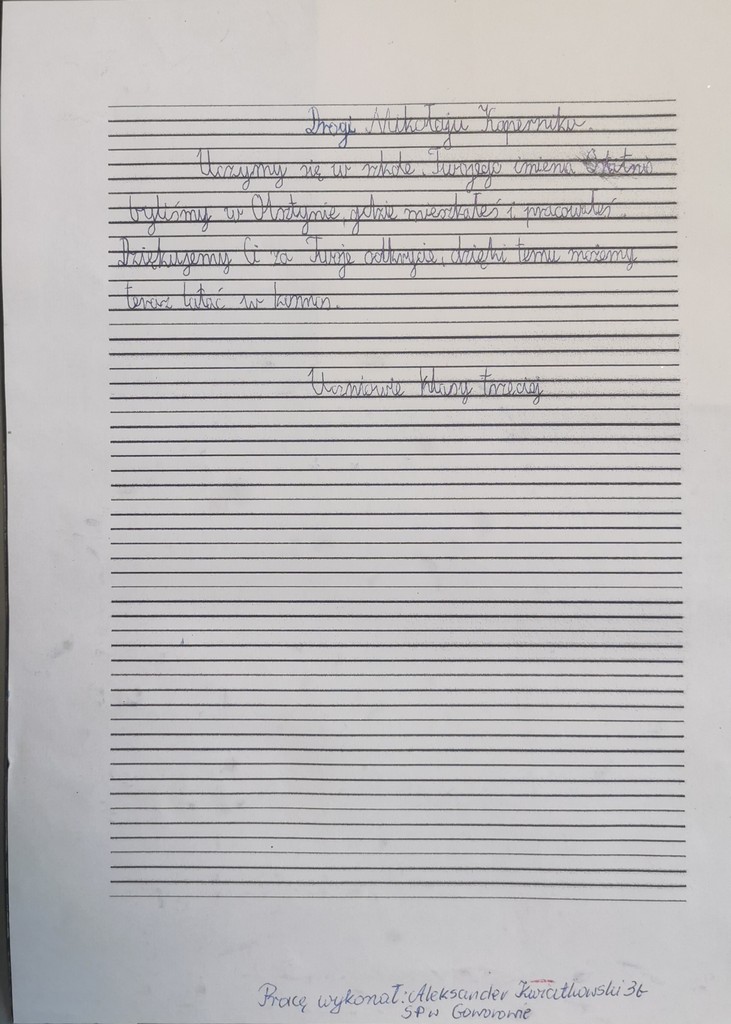 Drogi Mikołaju Koperniku.
Uczymy się w szkole Twojego imienia Ostatnio
byliśmy w Olsztynie, gdzie mieszkałeś i pracowałeś.
Dziękujemy Ci za Twoje odkrycie, dzięki temu możemy
teraz latać w kosmos.
Uczniowie klasy trzeciej
Pracę wykonał: Aleksander Kwiatkowski 3b
SP w Goworowie